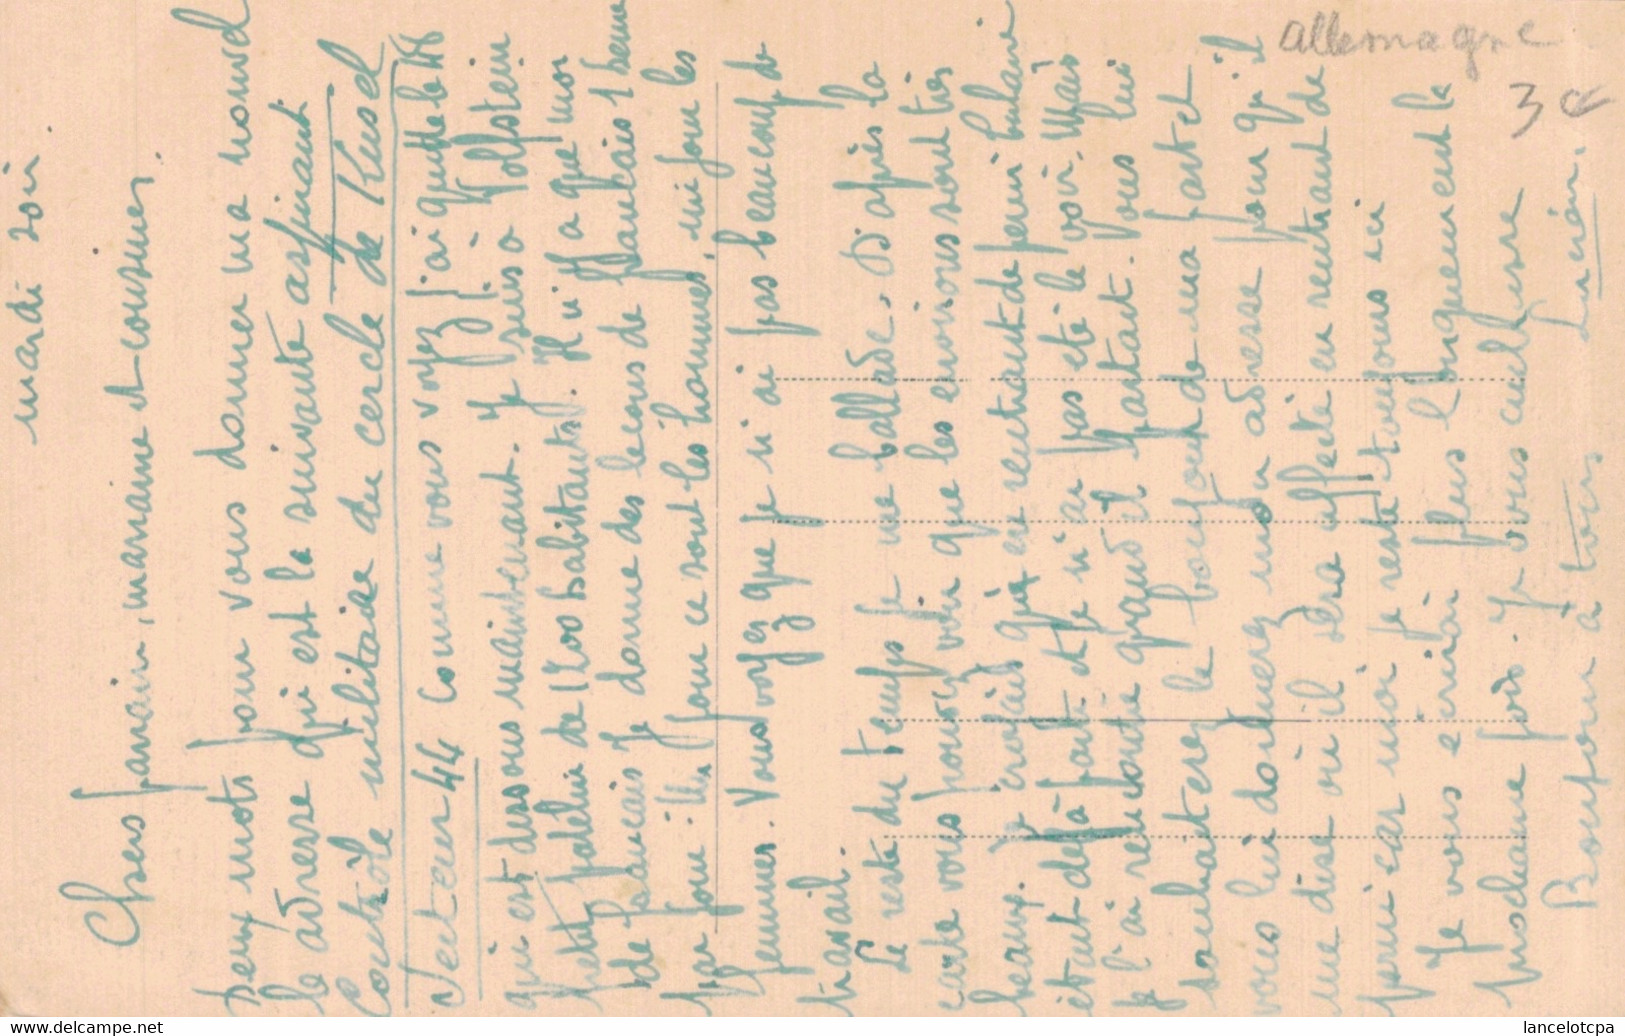 mardi soir
Chers parrain, marraine et cousines.
Deux mots pour vous donner ma nouvel
le adresse qui est la suivante aspirant
Contrôle militaire du cercle de Kusel
Secteur 44 Comme vous voyez j'ai quitté le 48
qui est dessous maintenant. Je suis à Wolfstein
petit patelin de 1200 habitants. Il n'y a que moi
de français je donne des leçons de français 1 heure
par jour: Un jour ce sont les hommes, un jour les
femmes. Vous voyez que je n'ai pas beaucoup de
travail.
Le reste du temps je me ballade. D'après la
carte vous pouvez voir que les environs sont très
beaux. Je croyais qu'en rentrant de perm
étant déjà parti et je n'ai pas été le voir. Mais
je l'ai rencontré quand il partait. Vous lui
souhaiterez le bonjour de ma part et
vous lui donnerez mon adresse pour qu'il
me dise où il sera affecté en rentrant de
perm car moi je reste toujours ici
Je vous écrirai plus longuement la
prochaine fois. Je vous embrasse
Bonjour à tous Lucien.
allemagne
3 €
www.delcampe.net
lancelotcpa